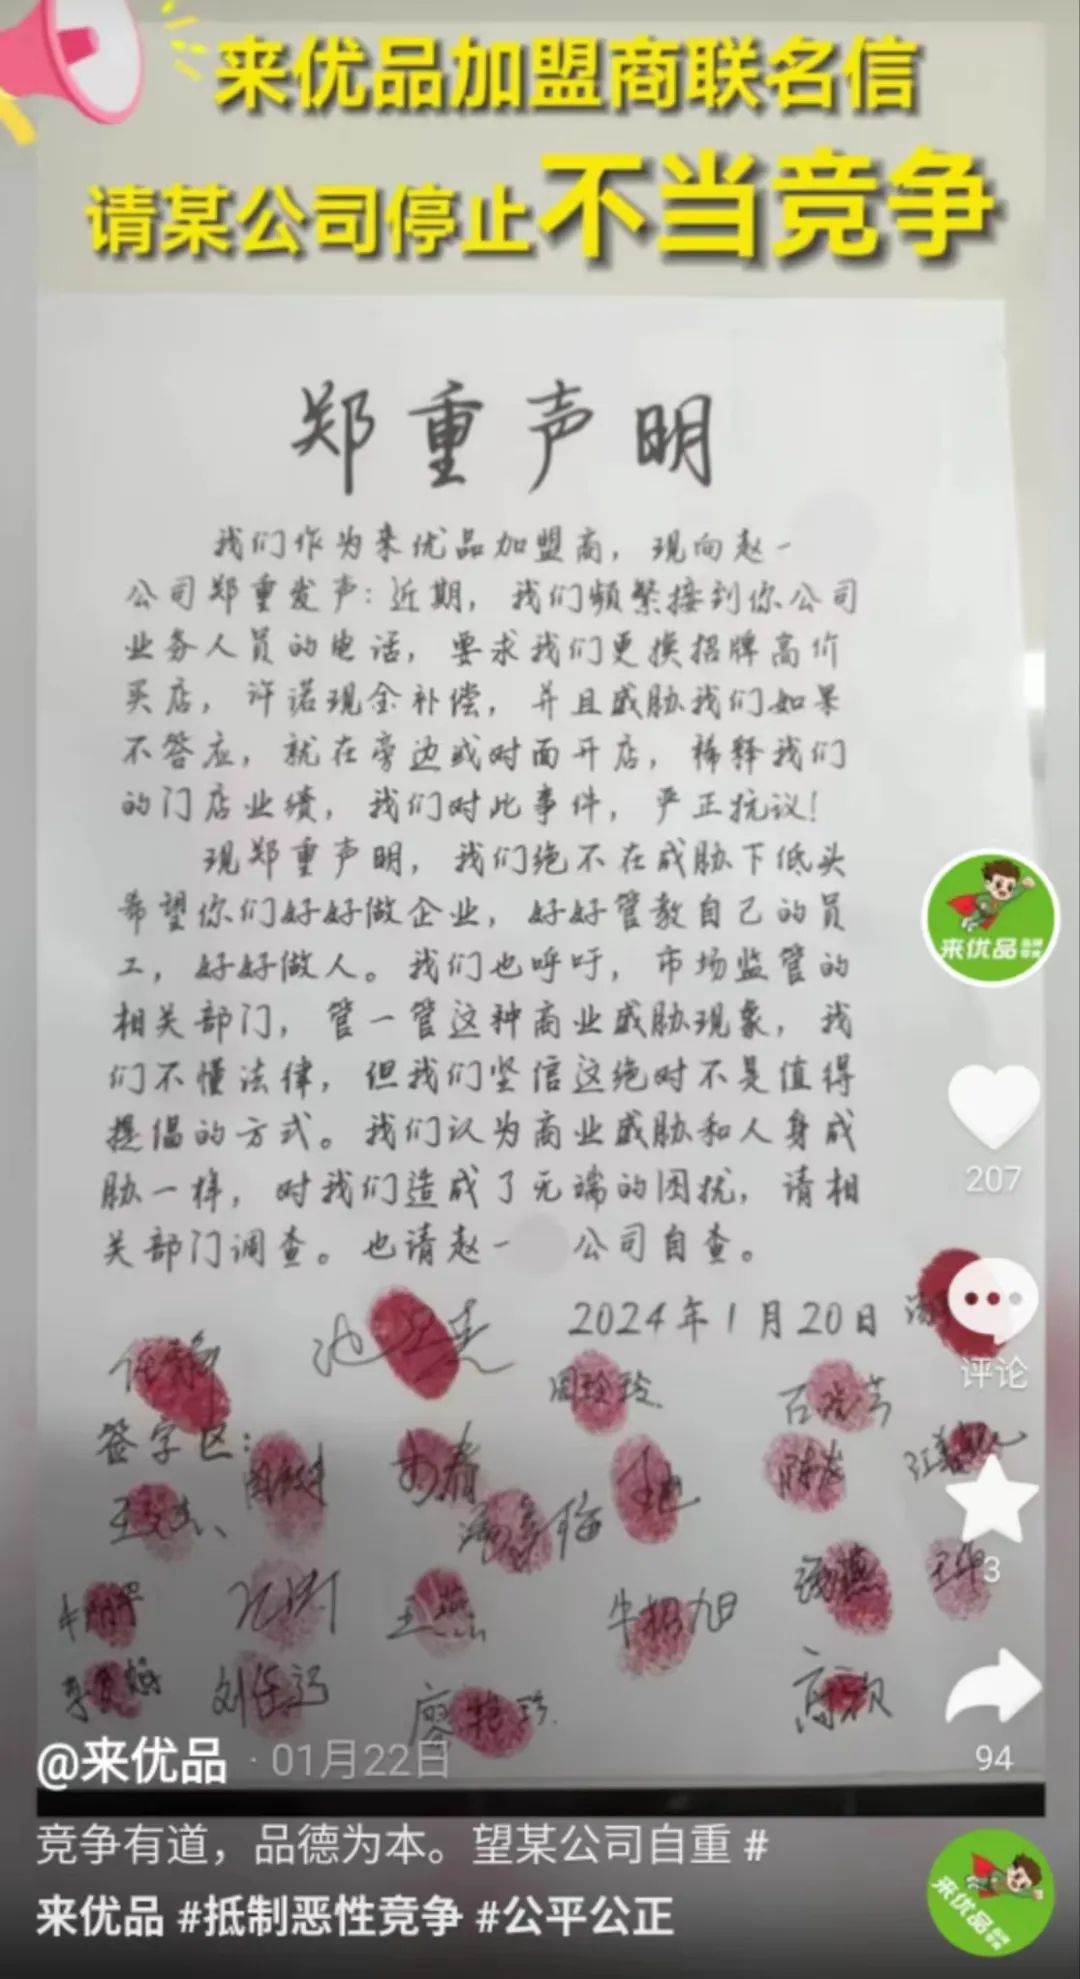 来优品加盟商联名信
请某公司停止不当竞争
郑重声明
我们作为来优品加盟商，现向赵一
公司郑重发声：近期，我们频繁接到你公司
业务人员的电话，要求我们更换招牌高价
买店，许诺现金补偿，并且威胁我们如果
不答应，就在旁边或对面开店，稀释我们
的门店业绩，我们对此事件，严正抗议！
现郑重声明，我们绝不在威胁下低头
希望你们好好做企业，好好管教自己的员
工，好好做人。我们也呼吁，市场监管的
相关部门，管一管这种商业威胁现象，我
们不懂法律，但我们坚信这绝对不是值得
提倡的方式。我们认为商业威胁和人身威
胁一样，对我们造成了无端的困扰，请相
关部门调查。也请赵一 公司自查。
2024年1月20日
周玲玲
签字区：
牛招旭
来优品
207
评论
3
94
@来优品 · 01月22日
竞争有道，品德为本。望某公司自重 #
来优品 #抵制恶性竞争 #公平公正
来优品